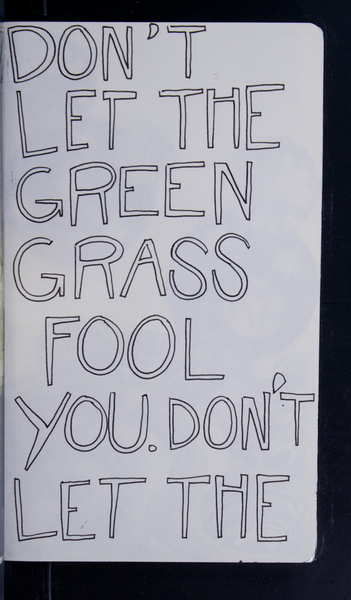 DON'T
LET THE
GREEN
GRASS
FOOL
YOU. DON'T
LET THE